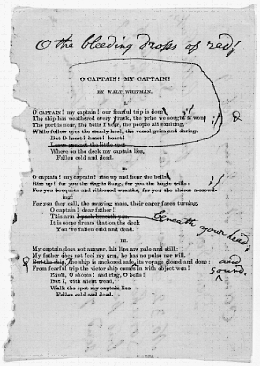 O the bleeding drops of red!
O CAPTAIN! MY CAPTAIN!
BY WALT WHITMAN.
I.
O CAPTAIN! my captain! our fearful trip is done;
The ship has weathered every wrack, the prize we sought is won;
The port is near, the bells I hear, the people all exulting,
While follow eyes the steady keel, the vessel grim and daring.
But O heart! heart! heart!
the little spot
Where on the deck my captain lies,
Fallen cold and dead.
II.
O captain! my captain! rise up and hear the bells;
Rise up! for you the flag is flung, for you the bugle trills;
For you bouquets and ribboned wreaths, for you the shores
For you they call, the swaying mass, their eager faces turning.
O captain! dear father!
This arm
beneath your head;
It is some dream that on the deck
You've fallen cold and dead.
III.
My captain does not answer, his lips are pale and still;
My father does not feel my arm, he has no pulse nor will.
But the ship, the ship is anchored safe, its voyage closed and done;
and sound
From fearful trip the victor ship comes in with object won!
Exult, O shores! and ring, O bells!
But I, with silent tread,
Walk the spot my captain lies
Fallen cold and dead.